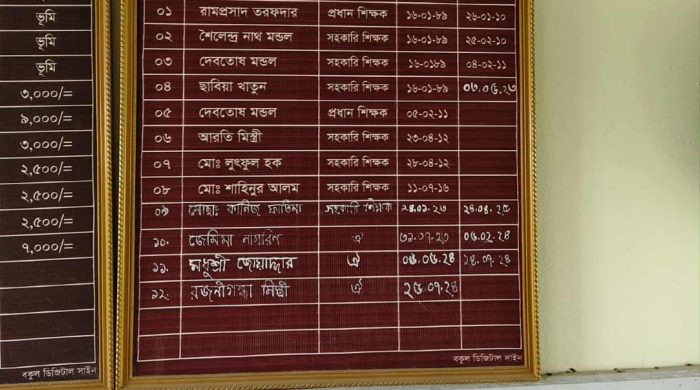 ভূমি
ভূমি
ভূমি
৩,০০০/=
৯,০০০/=
৩,০০০/=
২,৫০০/=
২,৫০০/=
২,৫০০/=
৭,০০০/=
বকুল ডিজিটাল সাইন
০১ রামপ্রসাদ তরফদার প্রধান শিক্ষক ১৬-০১-৮৯ ২৬-০১-১০
০২ শৈলেন্দ্র নাথ মন্ডল সহকারি শিক্ষক ১৬-০১-৮৯ ২৫-০২-১০
০৩ দেবতোষ মন্ডল সহকারি শিক্ষক ১৬-০১৮৯ ০৪-০২-১১
০৪ ছাবিয়া খাতুন সহকারি শিক্ষক ১৬-০১-৮৯
০৫ দেবতোষ মন্ডল প্রধান শিক্ষক ০৫-০২-১১
০৬ আরতি মিস্ত্রী সহকারি শিক্ষক ২৩-০৪-১২
০৭ মোঃ লুৎফুল হক সহকারি শিক্ষক ২৮-০৪-১২
০৮ মোঃ শাহিনুর আলম সহকারি শিক্ষক ১১-০৭-১৬
০৯ মোছাঃ কানিজ ফাতিমা সহকারী শিক্ষক
১০. জেমিমা নাসরিন ঐ
১১. মধুশ্রী জোয়াদ্দার ঐ ২৪.০৭.২৪
১২. রজনীগন্ধা মিস্ত্রী ঐ ২৫.০৭.২৪
বকুল ডিজিটাল সাইন